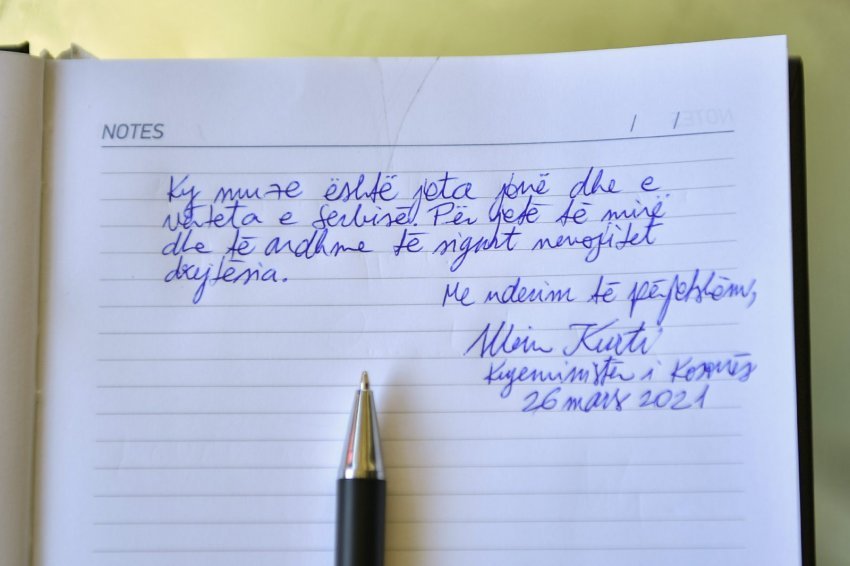 NOTES / /
Ky muze është jeta jonë dhe e
vërteta e Serbisë. Për jetë të mirë
dhe të ardhme të sigurt nevojitet
drejtësia.
Me nderim të përjetshëm,
Albin Kurti
Kryeministër i Kosovës
26 mars 2021